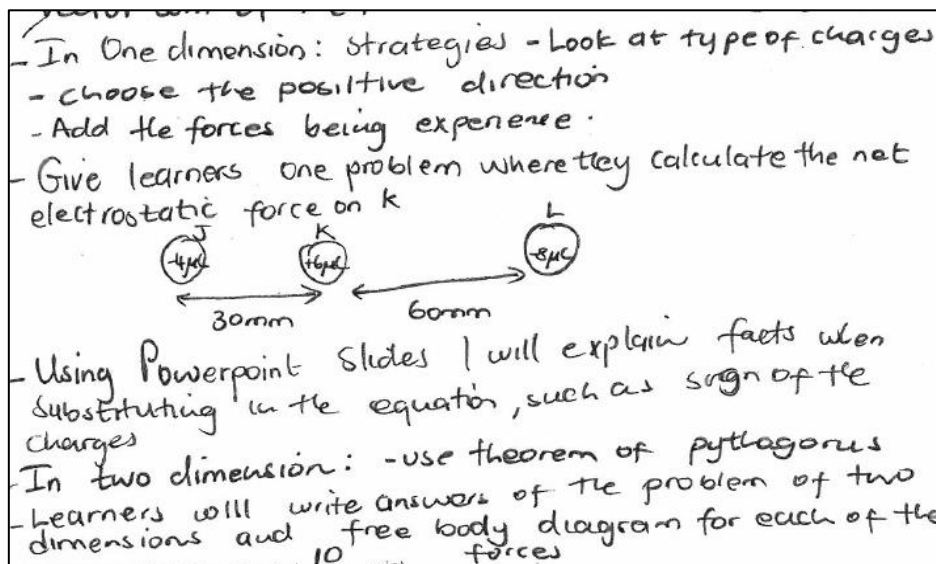 - In One dimension: strategies - Look at type of charges
- choose the positive direction
- Add the forces being experience.
- Give learners one problem where they calculate the net
electrostatic force on k
J K L
-4μC +6μC -8μC
30mm 60mm
- Using Powerpoint Slides I will explain facts when
substituting in the equation, such as sign of the
charges
- In two dimension: - use theorem of pythagorus
- Learners will write answers of the problem of two
dimensions and free body diagram for each of the
10 forces